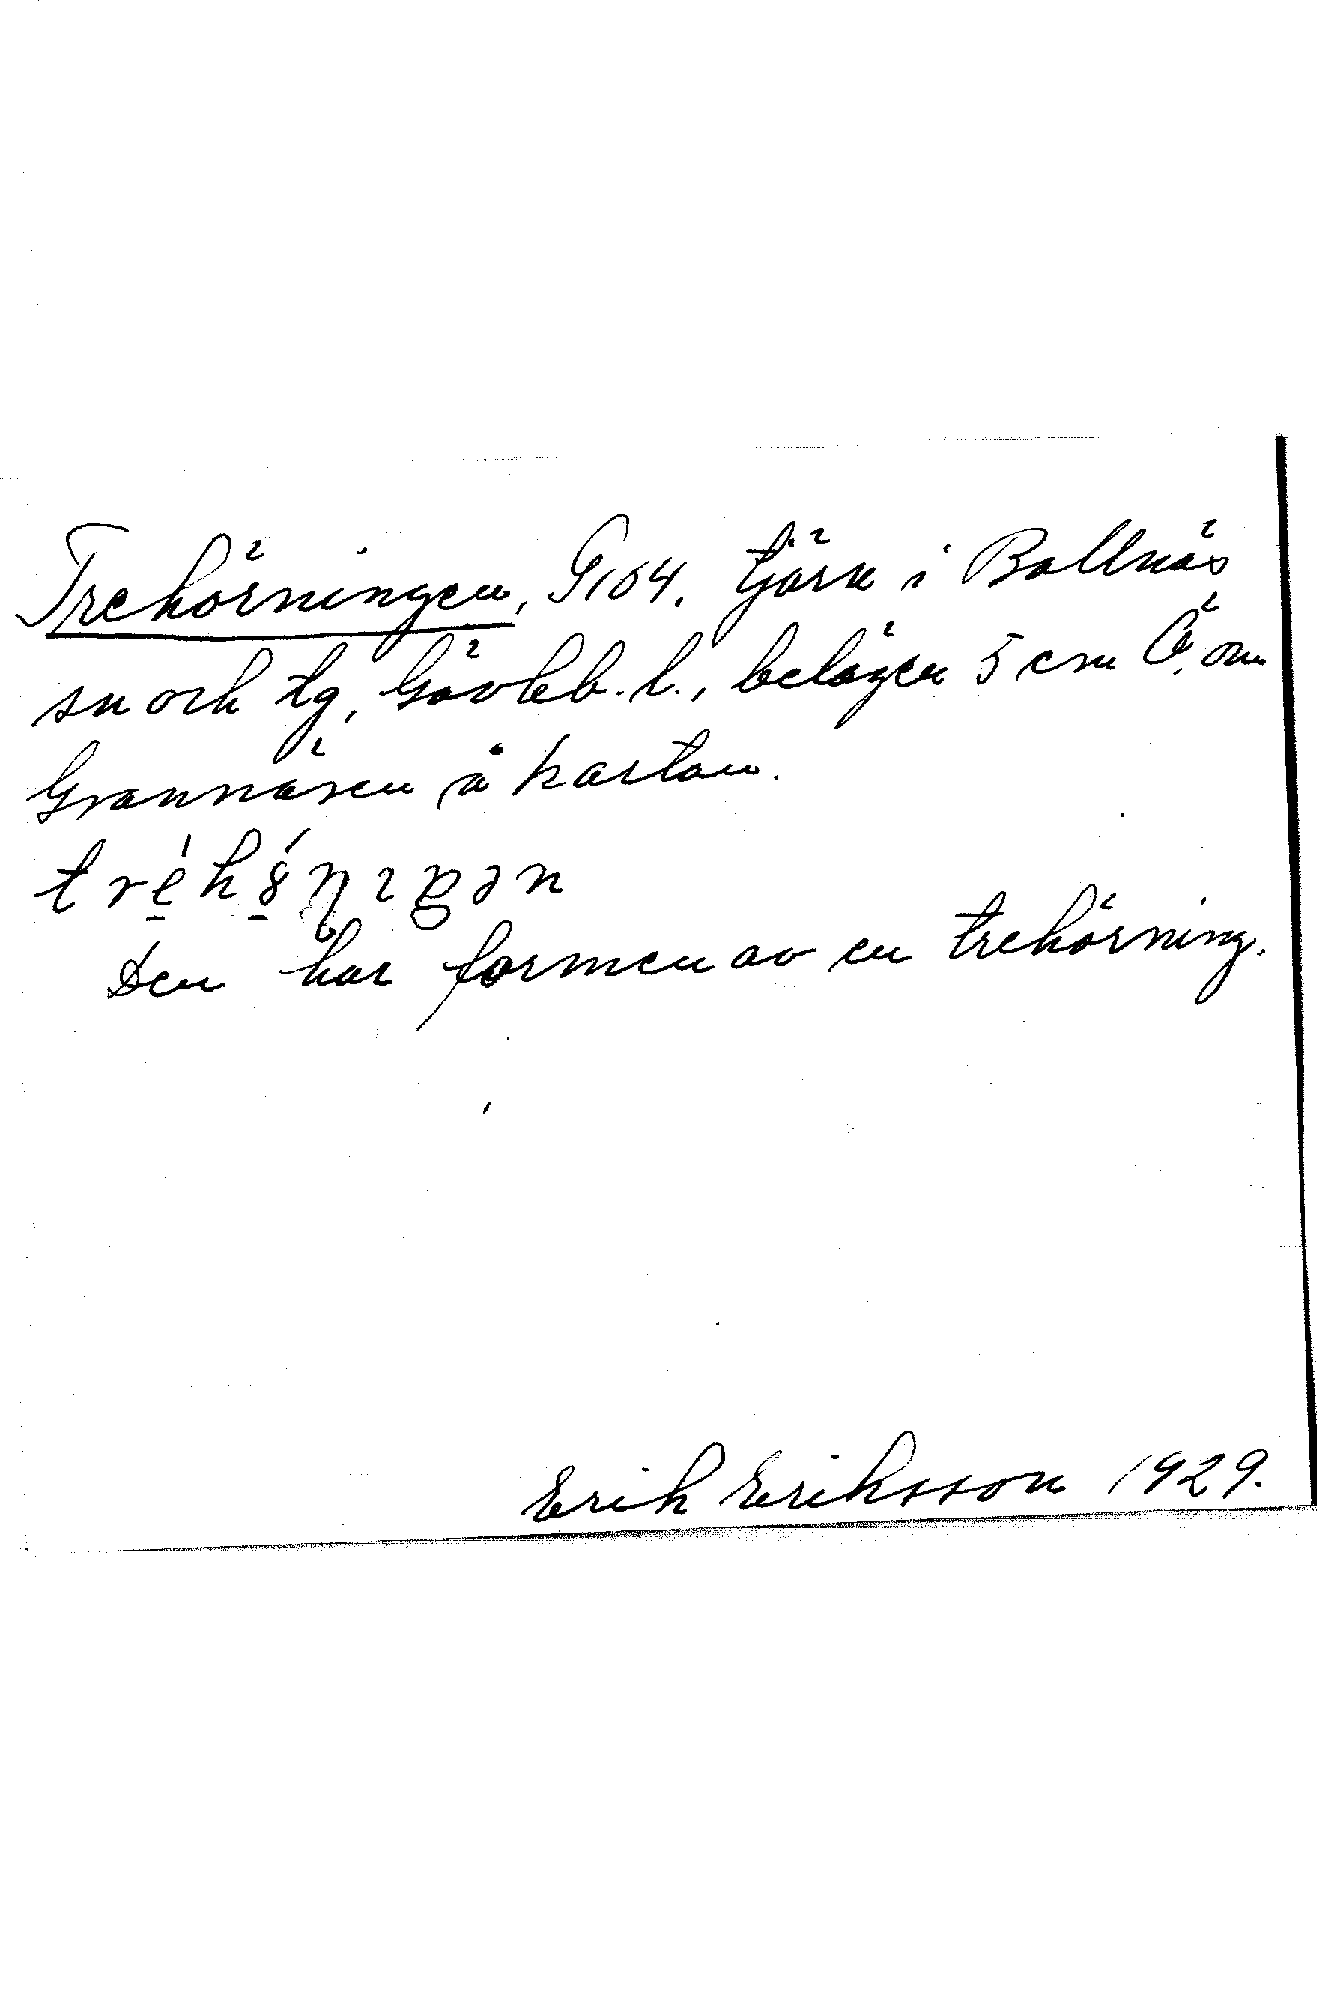 Trehörningen, G104. tjärn i Bollnäs
sn och tg, Gävleb. l., belägen 5 cm Ö. om
Grannäsen å kartan.
Den har formen av en trehörning.
Erik Eriksson 1929.